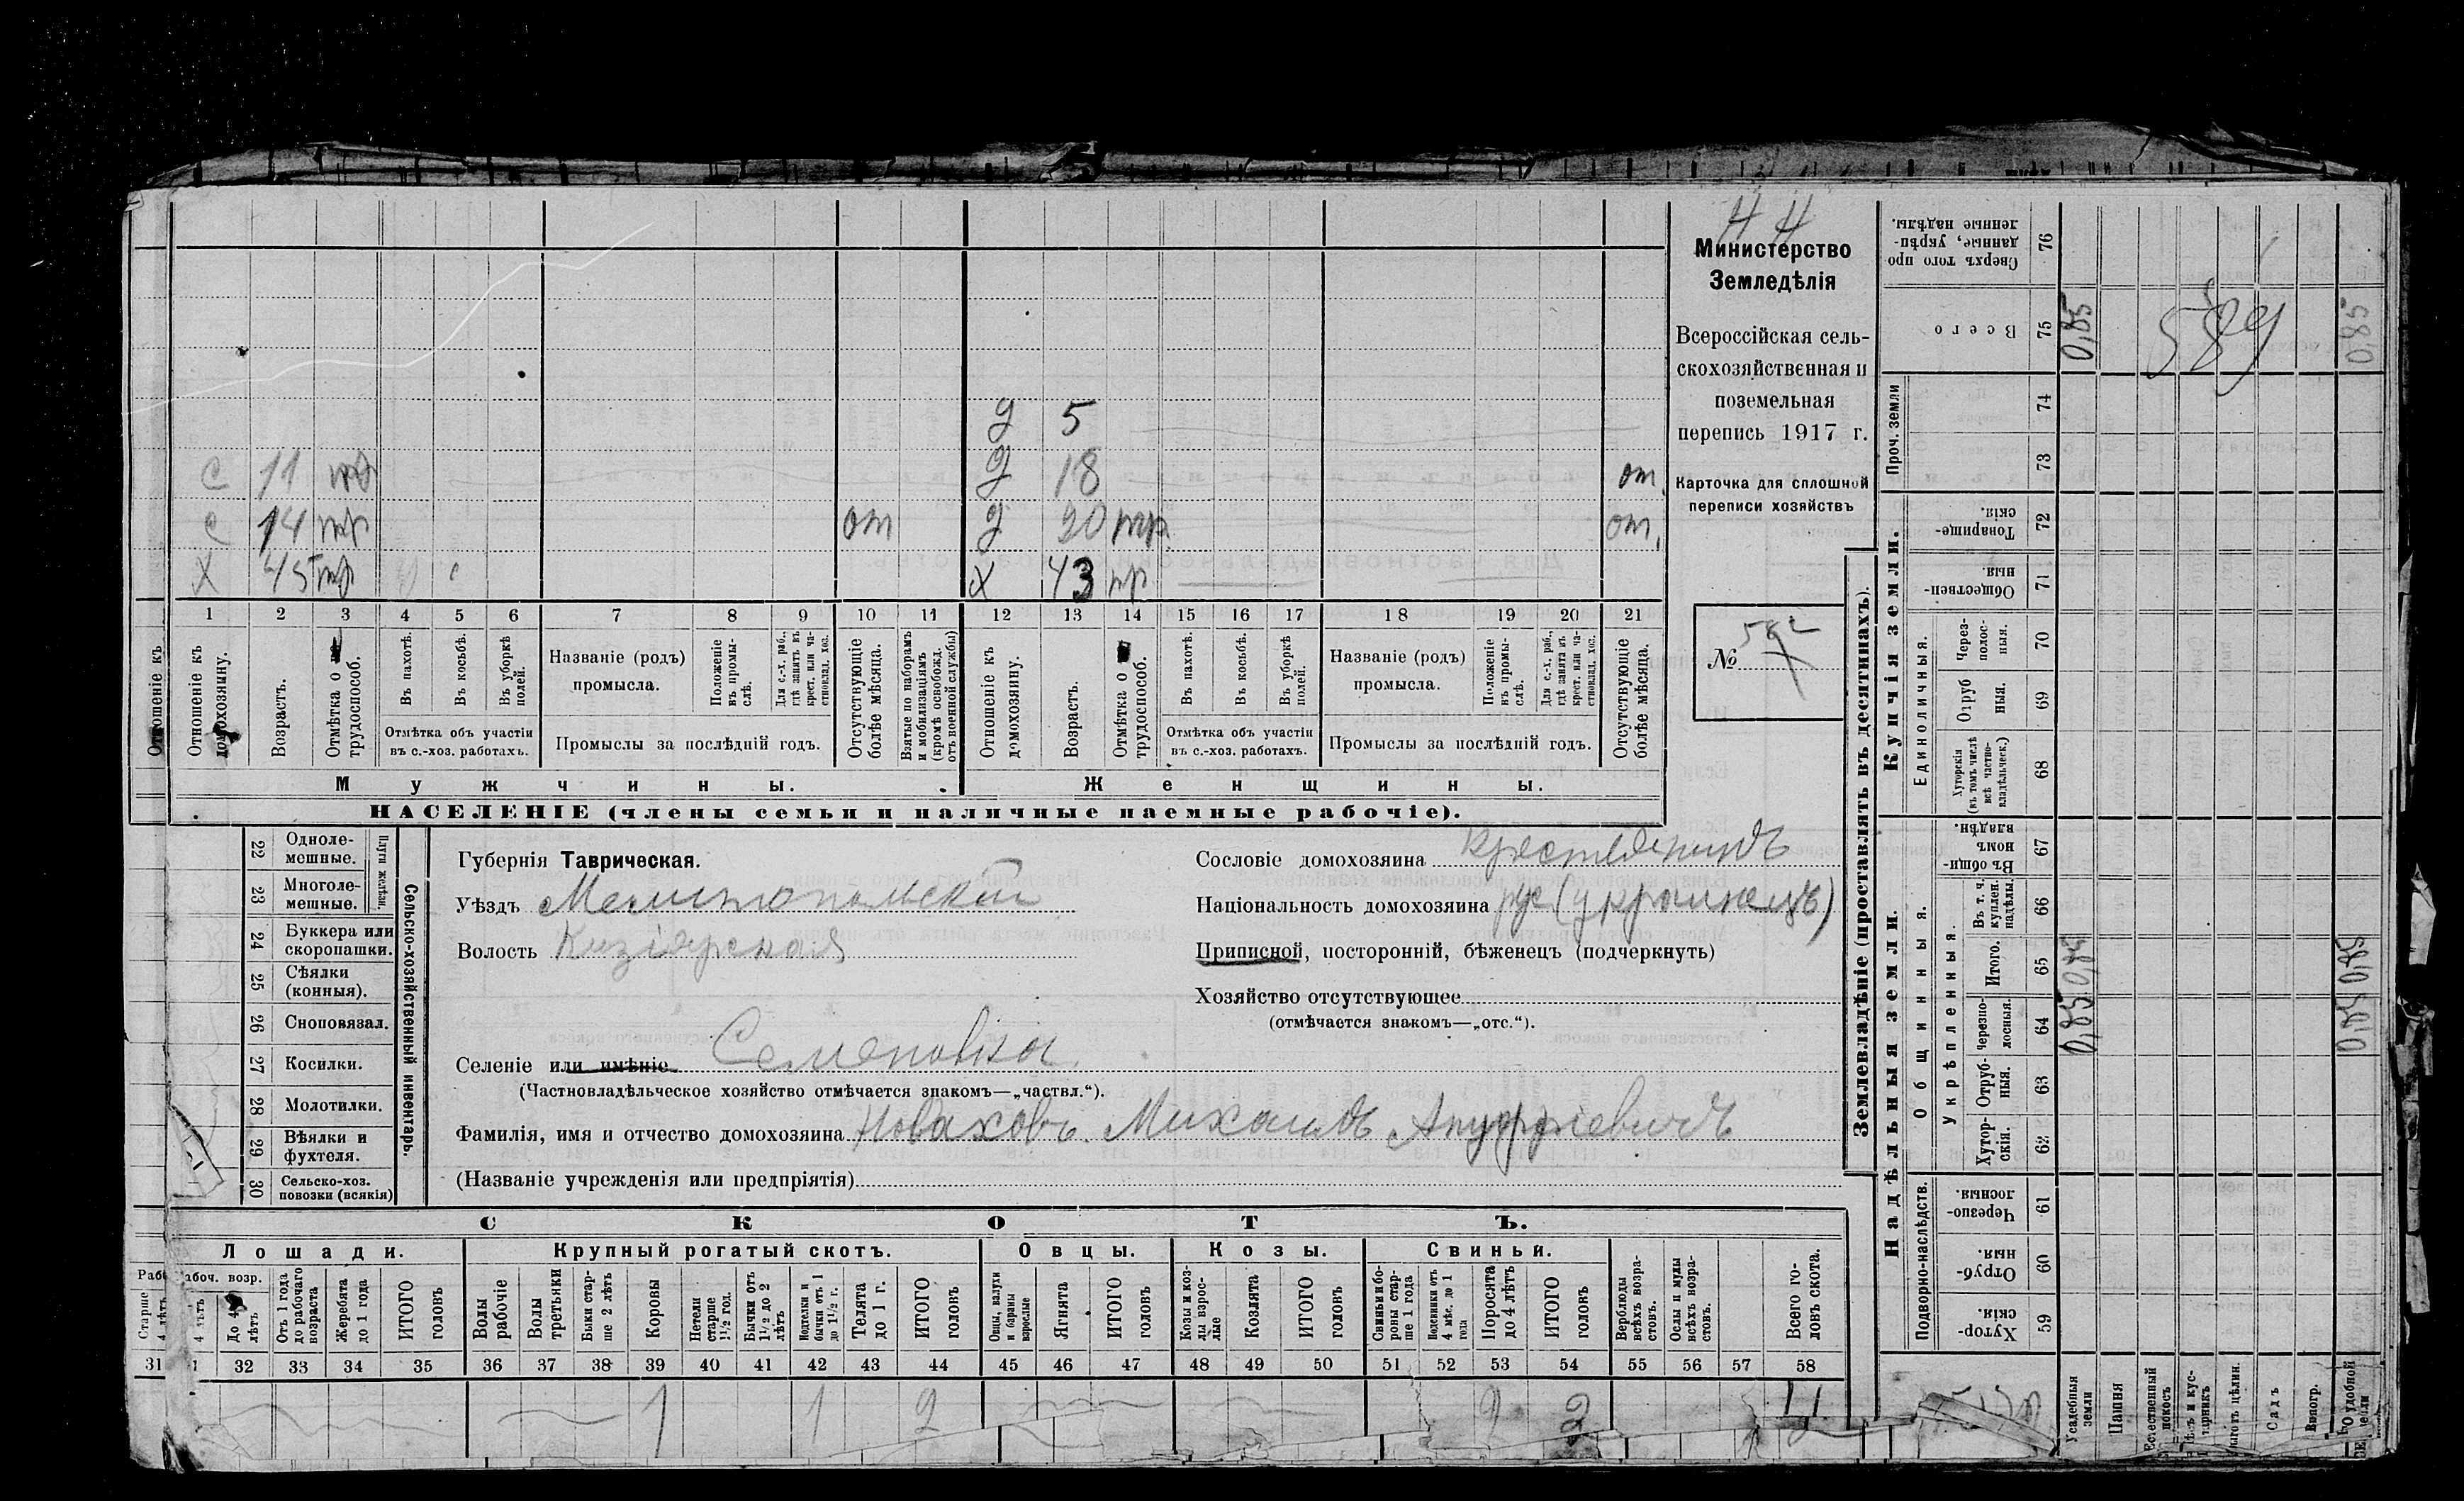 Н Н
Министерство
Земледѣлія
Всероссійская сель-
скохозяйственная и
поземельная
перепись 1917 г.
Карточка для сплошной
переписи хозяйствъ
№ 582
д 5
с 11 д 18 от.
с 14 от д 20 от.
х 45 х 43
1 2 3 4 5 6 7 8 9 10 11 12 13 14 15 16 17 18 19 20 21
Отношеніе къ
Отношеніе къ домохозяину.
Возрастъ.
Отмѣтка о трудоспособ.
Въ пахотѣ.
Въ косьбѣ.
Въ уборкѣ полей.
Отмѣтка объ участіи
въ с.-хоз. работахъ.
Названіе (родъ)
промысла.
Положеніе въ промы-слѣ.
Для с.-х. раб., гдѣ занятъ въ крест. или ча-стновлад. хоз.
Промыслы за послѣдній годъ.
Отсутствующіе болѣе мѣсяца.
Взятые по наборамъ и мобилизаціямъ (кромѣ освобожд. отъ военной службы)
Отношеніе къ домохозяину.
Возрастъ.
Отмѣтка о трудоспособ.
Въ пахотѣ.
Въ косьбѣ.
Въ уборкѣ полей.
Отмѣтка объ участіи
въ с.-хоз. работахъ.
Названіе (родъ)
промысла.
Положеніе въ промы-слѣ.
Для с.-х. раб., гдѣ занятъ въ крест. или ча-стновлад. хоз.
Промыслы за послѣдній годъ.
Отсутствующіе болѣе мѣсяца.
Мужчины. Женщины.
НАСЕЛЕНІЕ (члены семьи и наличные наемные рабочіе).
Сельско-хозяйственный инвентарь.
Плуги желѣзн.
22 Одноле-мешные.
23 Многоле-мешные.
24 Буккера или скоропашки.
25 Сѣялки (конныя).
26 Сноповязал.
27 Косилки.
28 Молотилки.
29 Вѣялки и фухтеля.
30 Сельско-хоз. повозки (всякія)
Губернія Таврическая.
Уѣздъ Мелитопольскій
Волость Кизіярская
Сословіе домохозяина крестьянинъ
Національность домохозяина рус (украинецъ)
Приписной, посторонній, бѣженецъ (подчеркнуть)
Хозяйство отсутствующее
(отмѣчается знакомъ—„отс.“).
Селеніе или имѣніе Семеновка
(Частновладѣльческое хозяйство отмѣчается знакомъ—„частвл.“).
Фамилія, имя и отчество домохозяина Новаховъ Михаилъ Ануфріевичъ
(Названіе учрежденія или предпріятія)
СКОТЪ.
Лошади. Крупный рогатый скотъ. Овцы. Козы. Свиньи.
До 4 лѣтъ
Отъ 1 года до рабочаго возраста
Жеребята до 1 года
ИТОГО головъ
Волы рабочіе
Волы третьяки
Быки стар-ше 2 лѣтъ
Коровы
Нетели старше 1½ год.
Бычки отъ 1½ до 2 лѣтъ
Подтелки и бычки отъ 1 до 1½ г.
Телята до 1 г.
ИТОГО головъ
Овцы, валухи и бараны взрослые
Ягнята
ИТОГО головъ
Козы и коз-лы взрос-лые
Козлята
ИТОГО головъ
Свиньи и бо-ровы стар-ше 1 года
Подсвинки отъ 4 мѣс. до 1 года
Поросята до 4 лѣтъ
ИТОГО головъ
Верблюды всѣхъ возра-стовъ.
Ослы и мулы всѣхъ возра-стовъ.
Всего го-ловъ скота.
31 32 33 34 35 36 37 38 39 40 41 42 43 44 45 46 47 48 49 50 51 52 53 54 55 56 57 58
1 1 2 2 2 4
Землевладѣніе (проставлять въ десятинахъ).
Купчія земли.
Надѣльныя земли.
Сверхъ того про-данные, укрѣп-ленные надѣлы. 76
Всего 75 0,85 0,85
589
Проч. земли 74
73
Товарище-скія. 72
Обществен-ныя. 71
Единоличныя.
Через-полос-ныя. 70
Отруб-ныя. 69
Хуторскія (въ томъ числѣ всѣ частно-владѣльческ.) 68
Общинныя.
Въ общи-номъ владѣн. 67
Укрѣпленныя.
Въ т. ч. куплен. надѣлы. 66
Итого. 65 0,85 0,85
Черезпо-лосныя. 64 0,85 0,85
Отруб-ныя. 63
Хутор-скія. 62
Подворно-наслѣдств.
Черезпо-лосныя. 61
Отруб-ныя. 60
Хутор-скія. 59
Усадебныя земли
Пашня
Естественный покосъ
Садъ
Виногр.